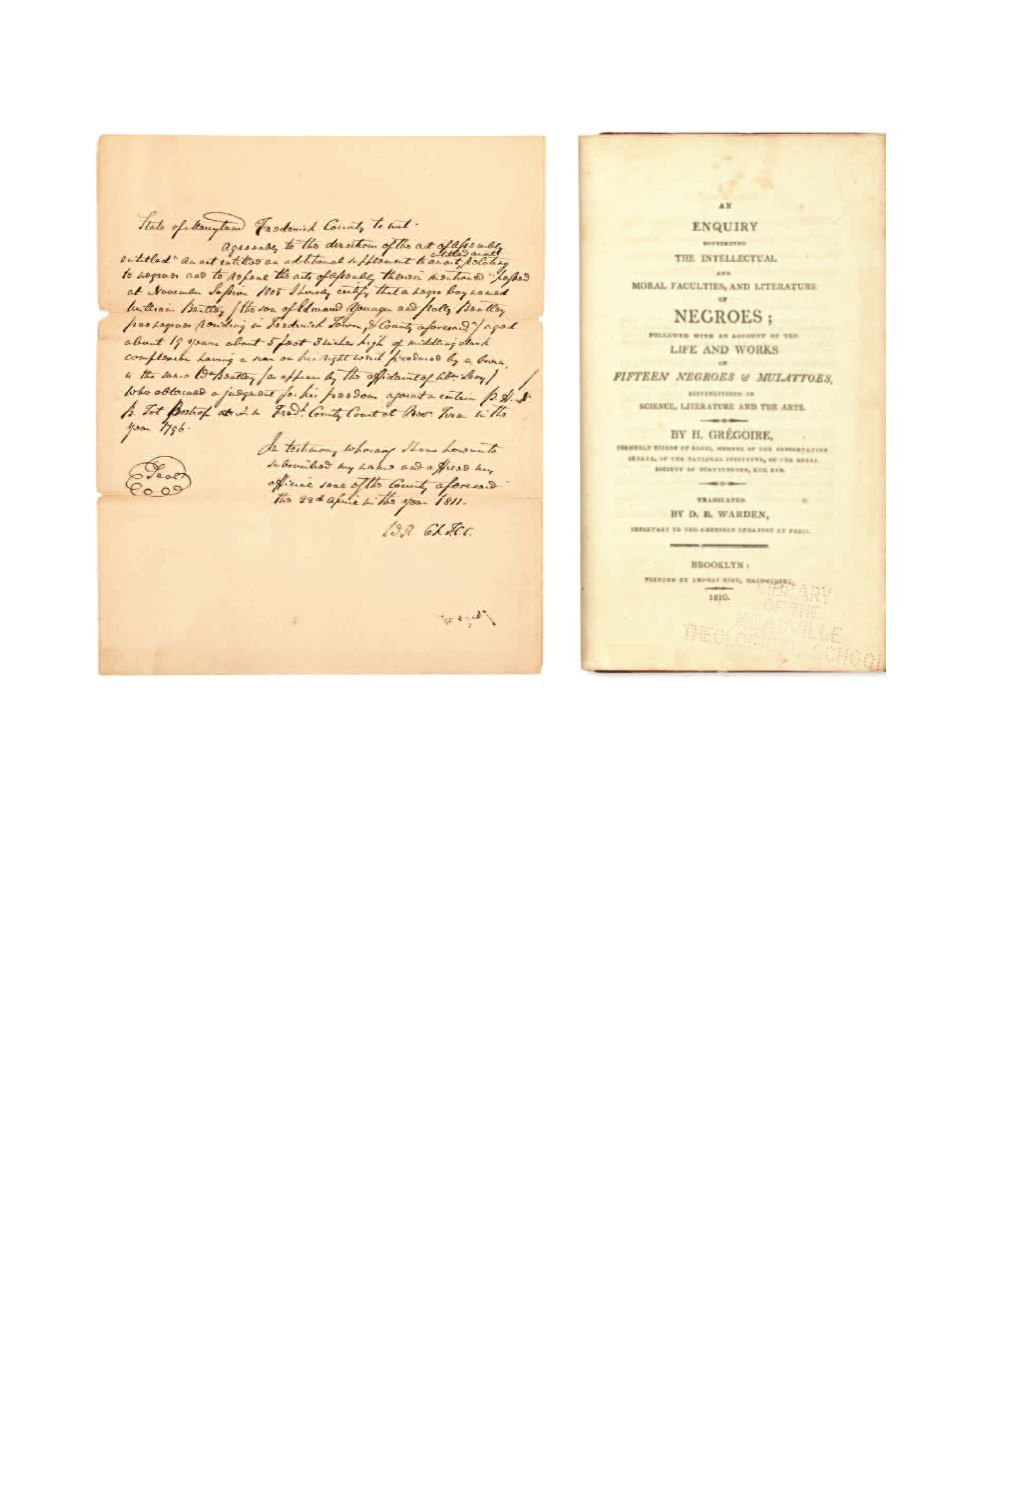 State of Maryland Frederick County to wit.
Agreeably to the directions of the act of Assembly
entitled an act
entitled "an act entitled an additional supplement to an act relating
to negroes and to repeal the acts of assembly therein mentioned" passed
at November Session 1805 I hereby certify that a negro boy named
William Bentley (the son of Edward Younger and Bentley
free negroes residing in Frederick Town, & County aforesaid) aged
about 19 years about 5 feet 3 inches high of middling dark
complexion having a scar on his right wrist produced by a burn,
is the same Wm Bentley (as appears by the affidavit of Levy)
who obtained a judgment for his freedom against a certain
in Fredk. County Court at Term in the
year 1796.
In testimony whereof I have hereunto
subscribed my name and affixed my
official seal of the County aforesaid
the 22d April in the year 1811.
Seal
AN
ENQUIRY
CONCERNING
THE INTELLECTUAL
AND
MORAL FACULTIES, AND LITERATURE
OF
NEGROES;
FOLLOWED WITH AN ACCOUNT OF THE
LIFE AND WORKS
OF
FIFTEEN NEGROES & MULATTOES,
DISTINGUISHED IN
SCIENCE, LITERATURE AND THE ARTS.
BY H. GRÉGOIRE,
FORMERLY BISHOP OF BLOIS, MEMBER OF THE CONSERVATIVE
SENATE, OF THE NATIONAL INSTITUTE, OF THE ROYAL
SOCIETY OF GOTTINGUEN, ETC. ETC.
TRANSLATED
BY D. B. WARDEN,
SECRETARY TO THE AMERICAN LEGATION AT PARIS.
BROOKLYN:
PRINTED BY THOMAS KIRK, MAIN-STREET,
1810.
LIBRARY
OF THE
MEADVILLE
THEOLOGICAL SCHOOL